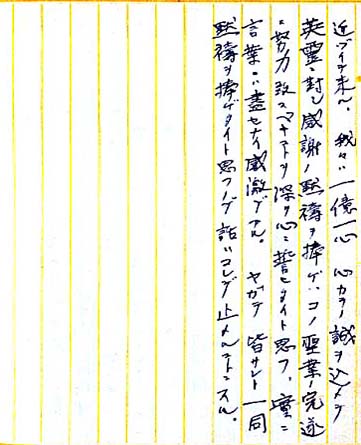 近ヅイテ来ル。我々ハ一億一心 心カラノ誠ヲ込メテ
英霊ニ対シ感謝ノ黙祷ヲ捧ゲ、コノ聖業ノ完遂
ニ努力致スベキコトヲ深ク心ニ誓ヒタイト思フ。實ニ
言葉ニハ盡セナイ感激デアル。ヤガテ皆サント一同
黙祷ヲ捧ゲタイト思フノデ話ハコレデ止メルコトニスル。